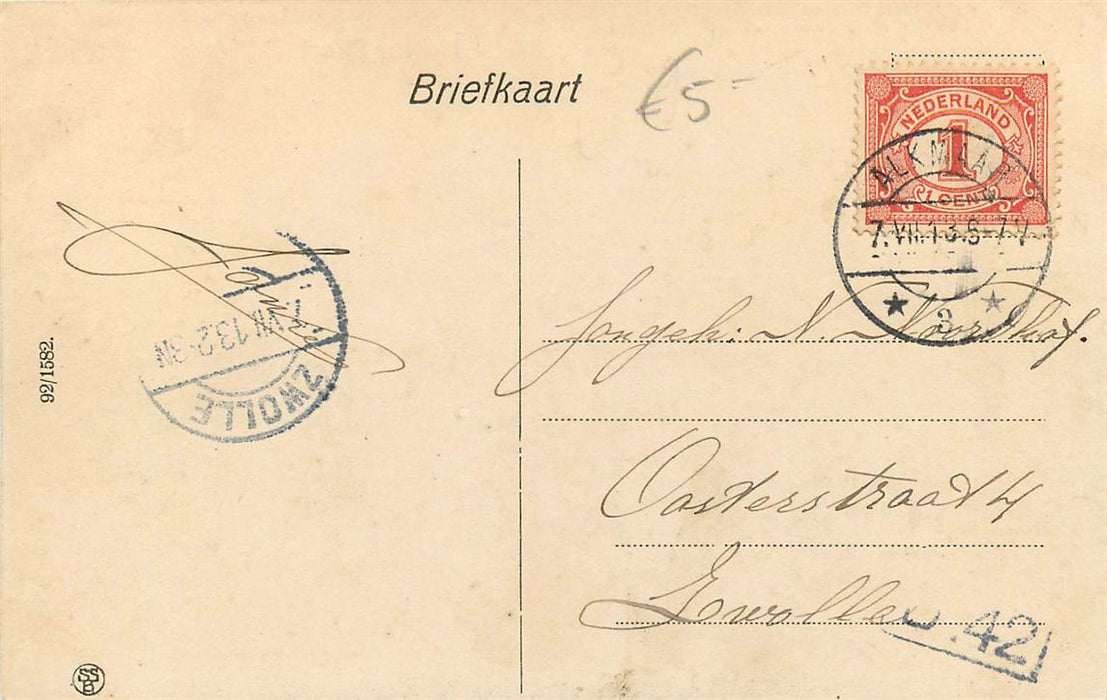 Briefkaart
€5-
NEDERLAND
1
1 CENT
ALKMAAR
7.VII.13.6-7V
3
Jongeh: N. Noordhof.
Oosterstraat 4
Zwolle
7.VII.13 2-3N
ZWOLLE
92/1582.
SS
B
42